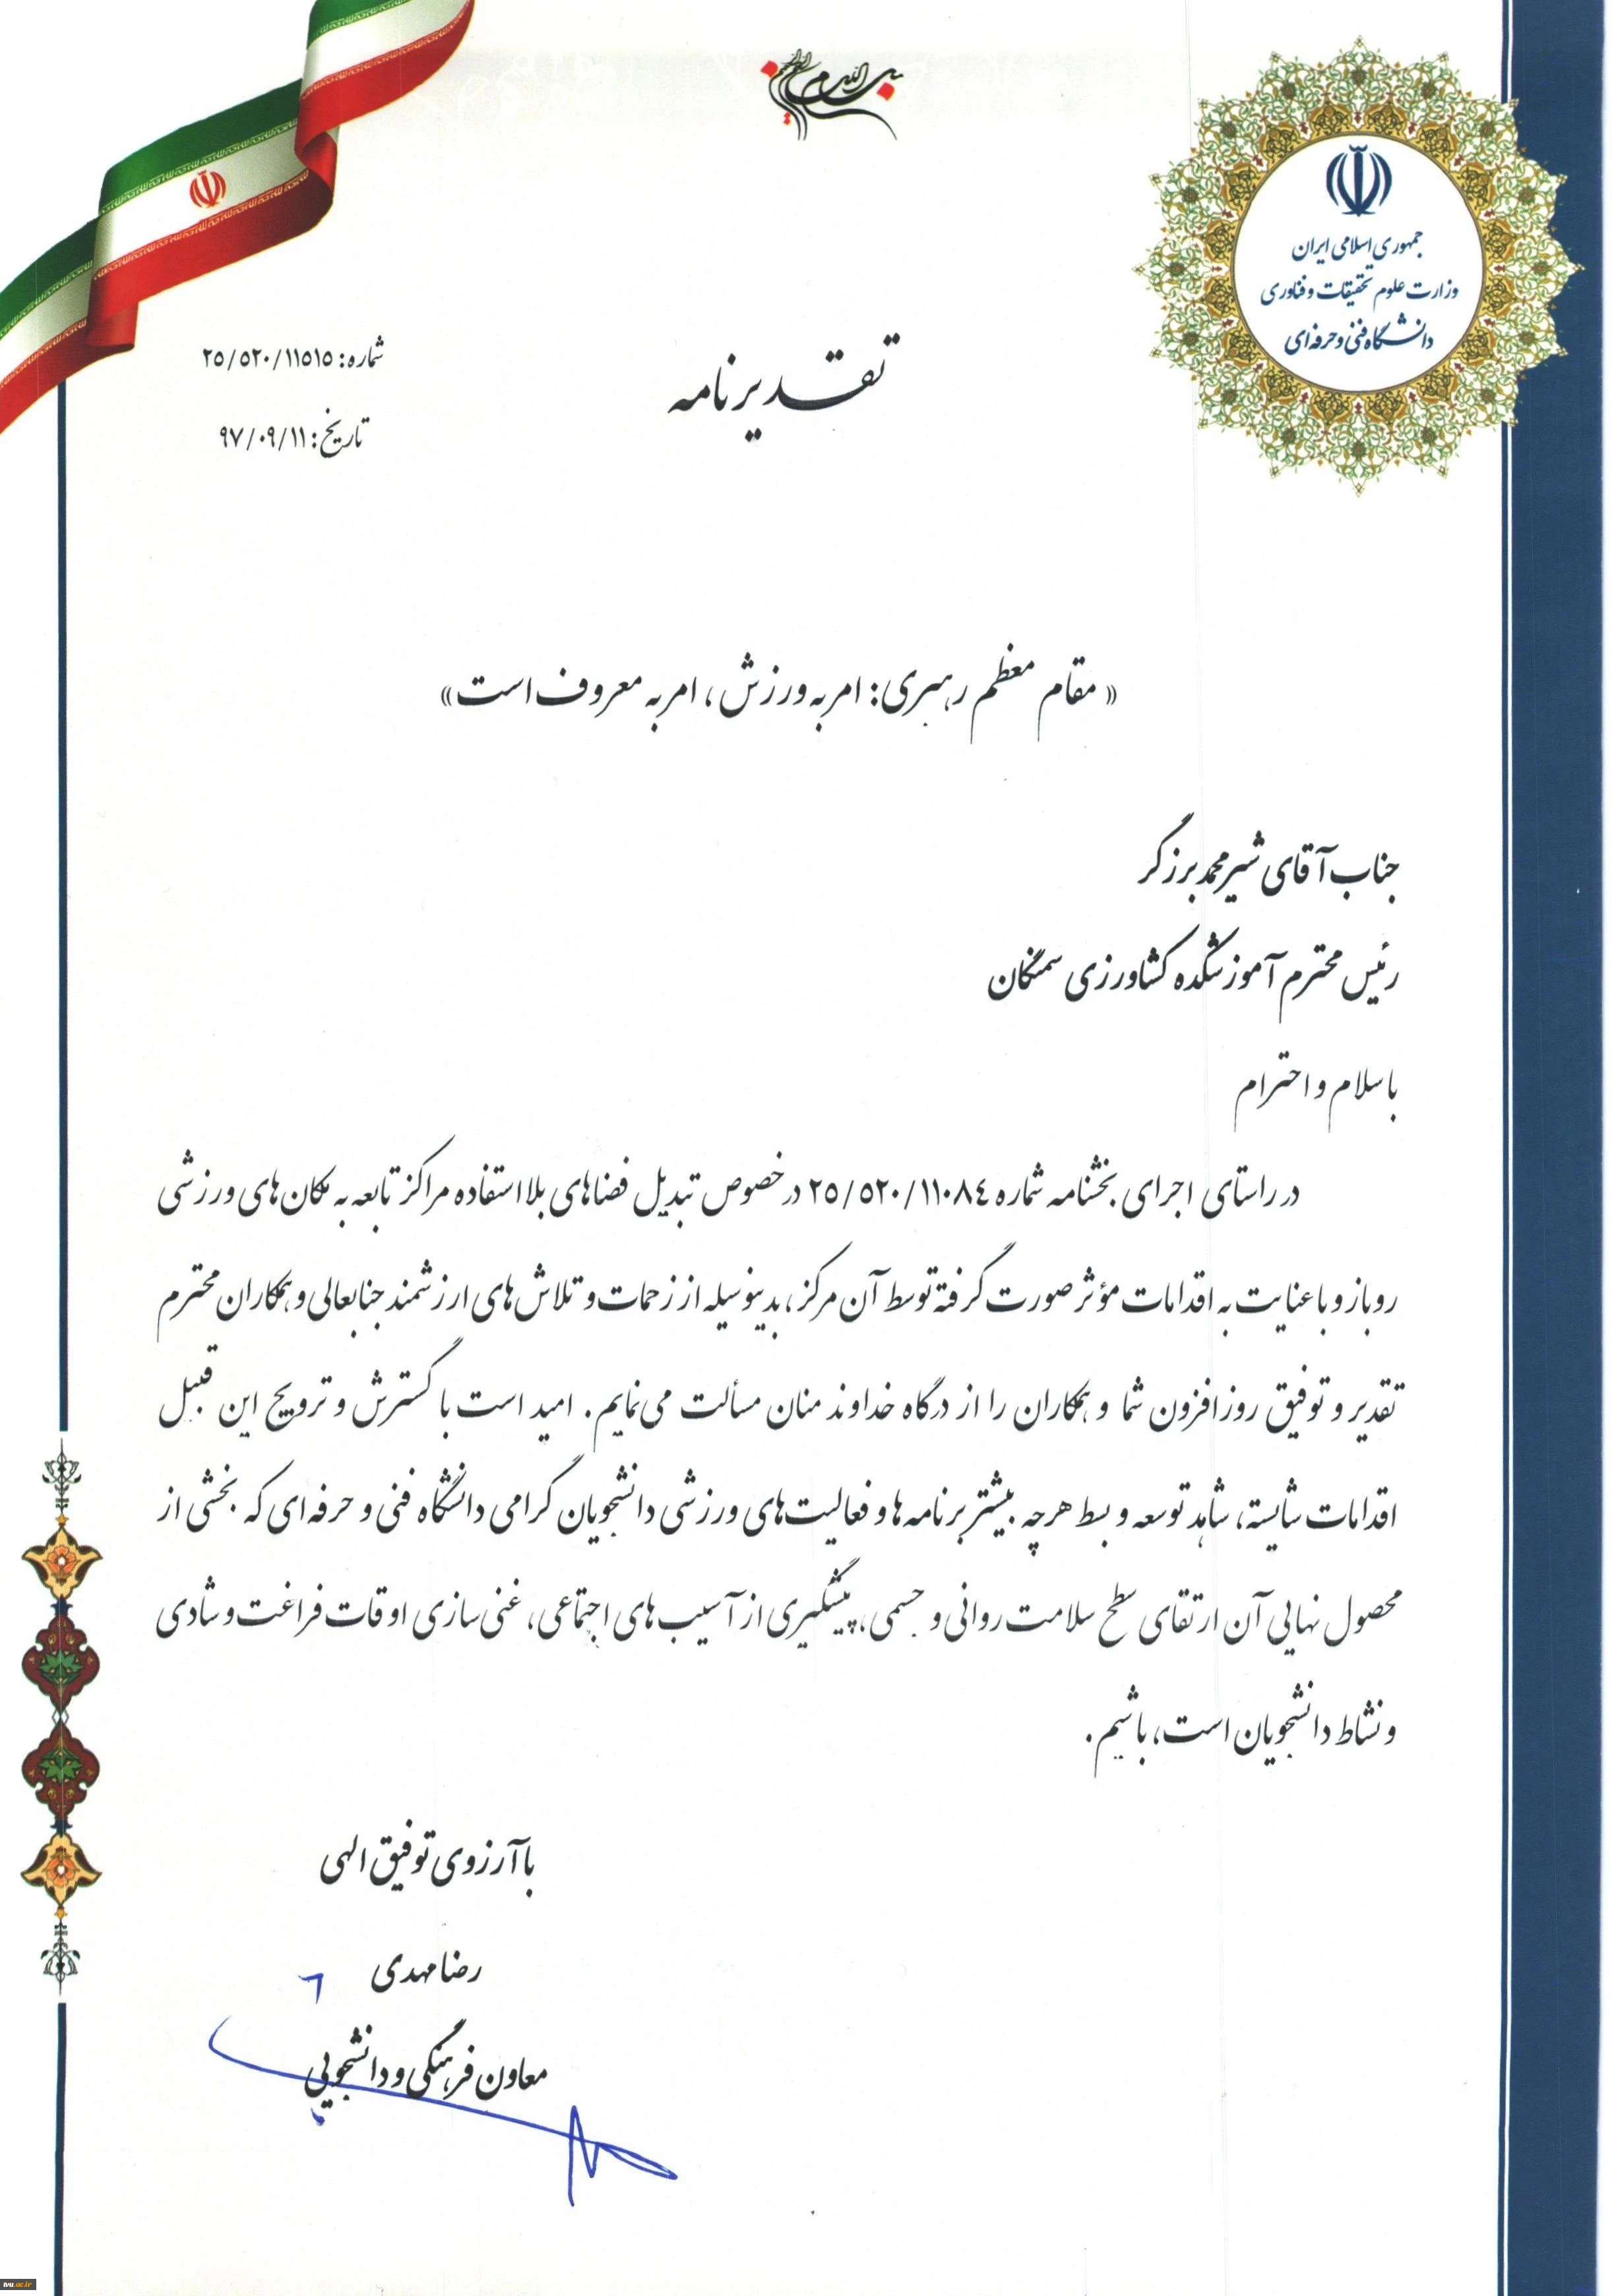 بسم الله الرحمن الرحیم
جمهوری اسلامی ایران
وزارت علوم تحقیقات و فناوری
دانشگاه فنی و حرفه‌ای
شماره: ۲۵/۵۲۰/۱۱۵۱۵
تاریخ: ۹۷/۰۹/۱۱
تقدیرنامه
« مقام معظم رهبری: امر به ورزش، امر به معروف است»
جناب آقای شیرمحمد برزگر
رئیس محترم آموزشکده کشاورزی سمنگان
با سلام و احترام
در راستای اجرای بخشنامه شماره ۲۵/۵۲۰/۱۱۰۸٤ در خصوص تبدیل فضاهای بلااستفاده مراکز تابعه به مکان‌های ورزشی
روباز و با عنایت به اقدامات مؤثر صورت گرفته توسط آن مرکز، بدینوسیله از زحمات و تلاش‌های ارزشمند جنابعالی و همکاران محترم
تقدیر و توفیق روزافزون شما و همکاران را از درگاه خداوند منان مسألت می‌نمایم. امید است با گسترش و ترویج این قبیل
اقدامات شایسته، شاهد توسعه و بسط هرچه بیشتر برنامه‌ها و فعالیت‌های ورزشی دانشجویان گرامی دانشگاه فنی و حرفه‌ای که بخشی از
محصول نهایی آن ارتقای سطح سلامت روانی و جسمی، پیشگیری از آسیب‌های اجتماعی، غنی سازی اوقات فراغت و شادی
و نشاط دانشجویان است، باشیم.
با آرزوی توفیق الهی
رضا مهدی
معاون فرهنگی و دانشجویی
tvu.ac.ir